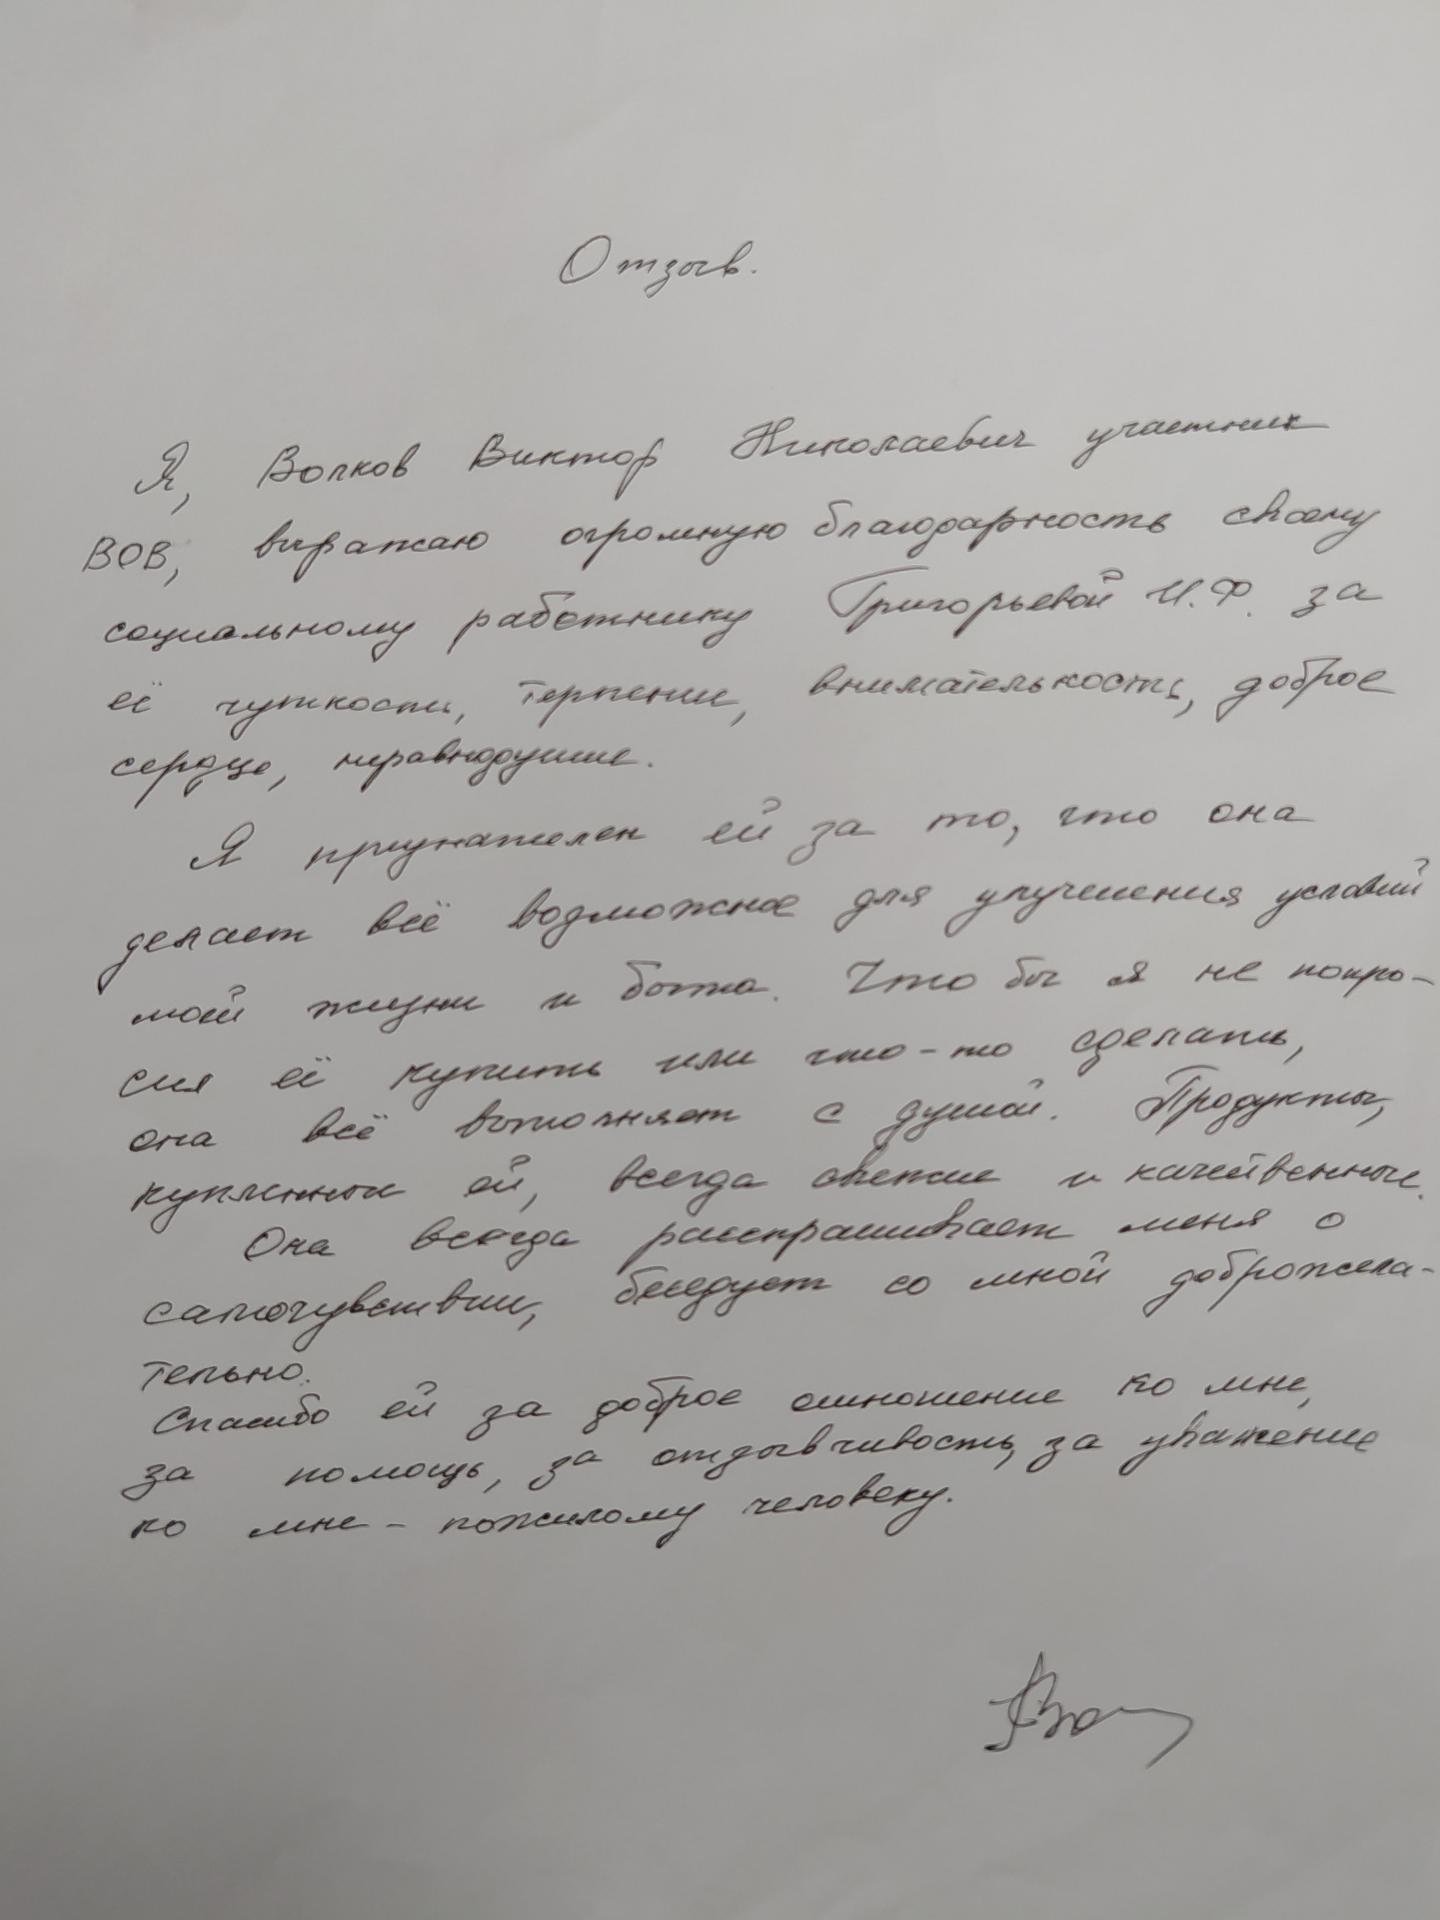 Отзыв.
Я, Волков Виктор Николаевич участник
ВОВ, выражаю огромную благодарность своему
социальному работнику Григорьевой И.Ф. за
её чуткость, терпение, внимательность, доброе
сердце, неравнодушие.
Я признателен ей за то, что она
делает всё возможное для улучшения условий
моей жизни и быта. Что бы я не попро-
сил её купить или что-то сделать,
она всё выполняет с душой. Продукты,
купленные ей, всегда свежие и качественные.
Она всегда расспрашивает меня о
самочувствии, беседует со мной доброжела-
тельно.
Спасибо ей за доброе отношение ко мне,
за помощь, за отзывчивость, за уважение
ко мне - пожилому человеку.